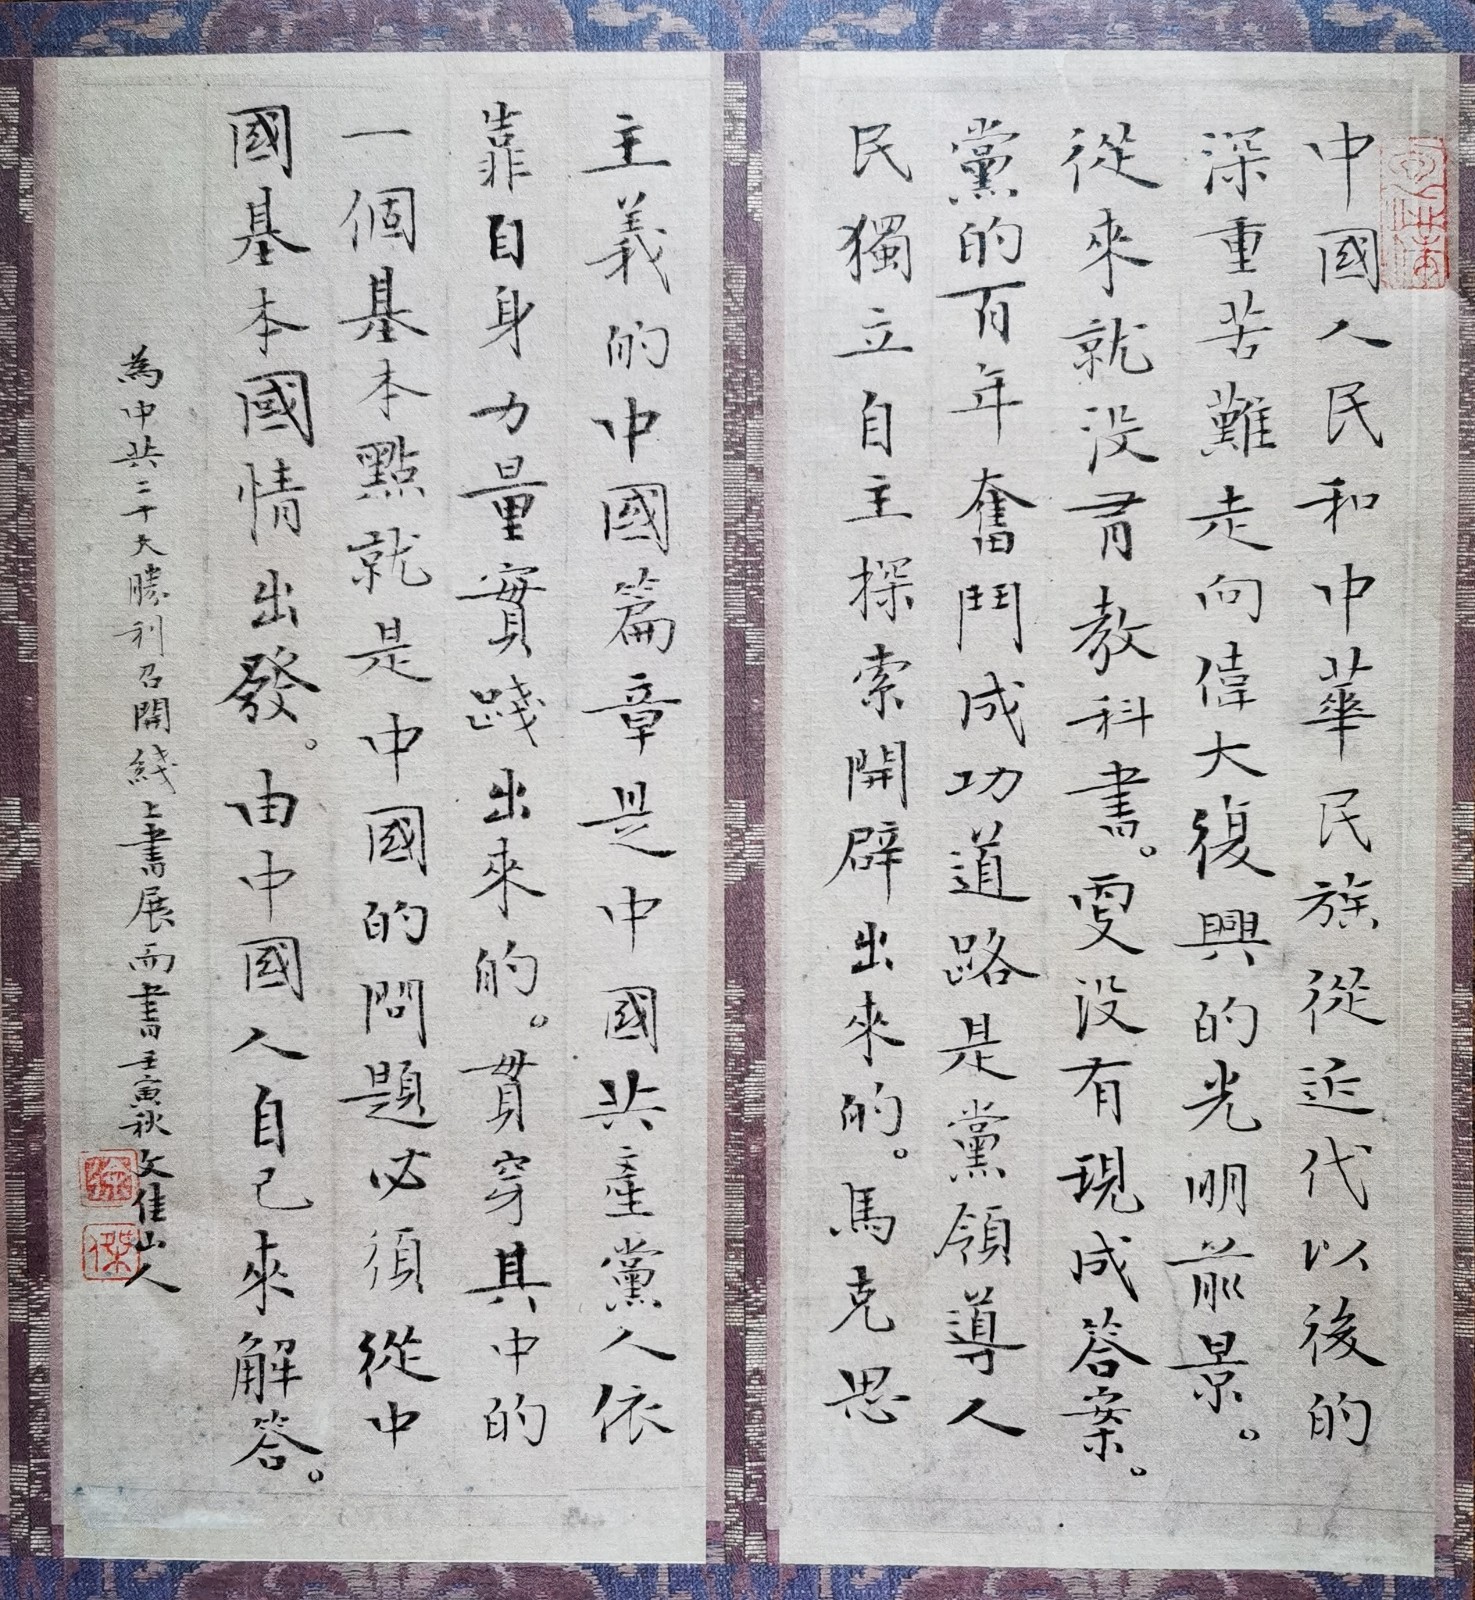 中國人民和中華民族從近代以後的
深重苦難走向偉大復興的光明前景。
從來就没有教科書。更没有現成答案。
黨的百年奮鬥成功道路是黨領導人
民獨立自主探索開辟出來的。馬克思
主義的中國篇章是中國共產黨人依
靠自身力量實踐出來的。貫穿其中的
一個基本點就是中國的問題必須從中
國基本國情出發。由中國人自己來解答。
為中共二十大勝利召開綫上書展而書壬寅秋文佳山人
徐
傑